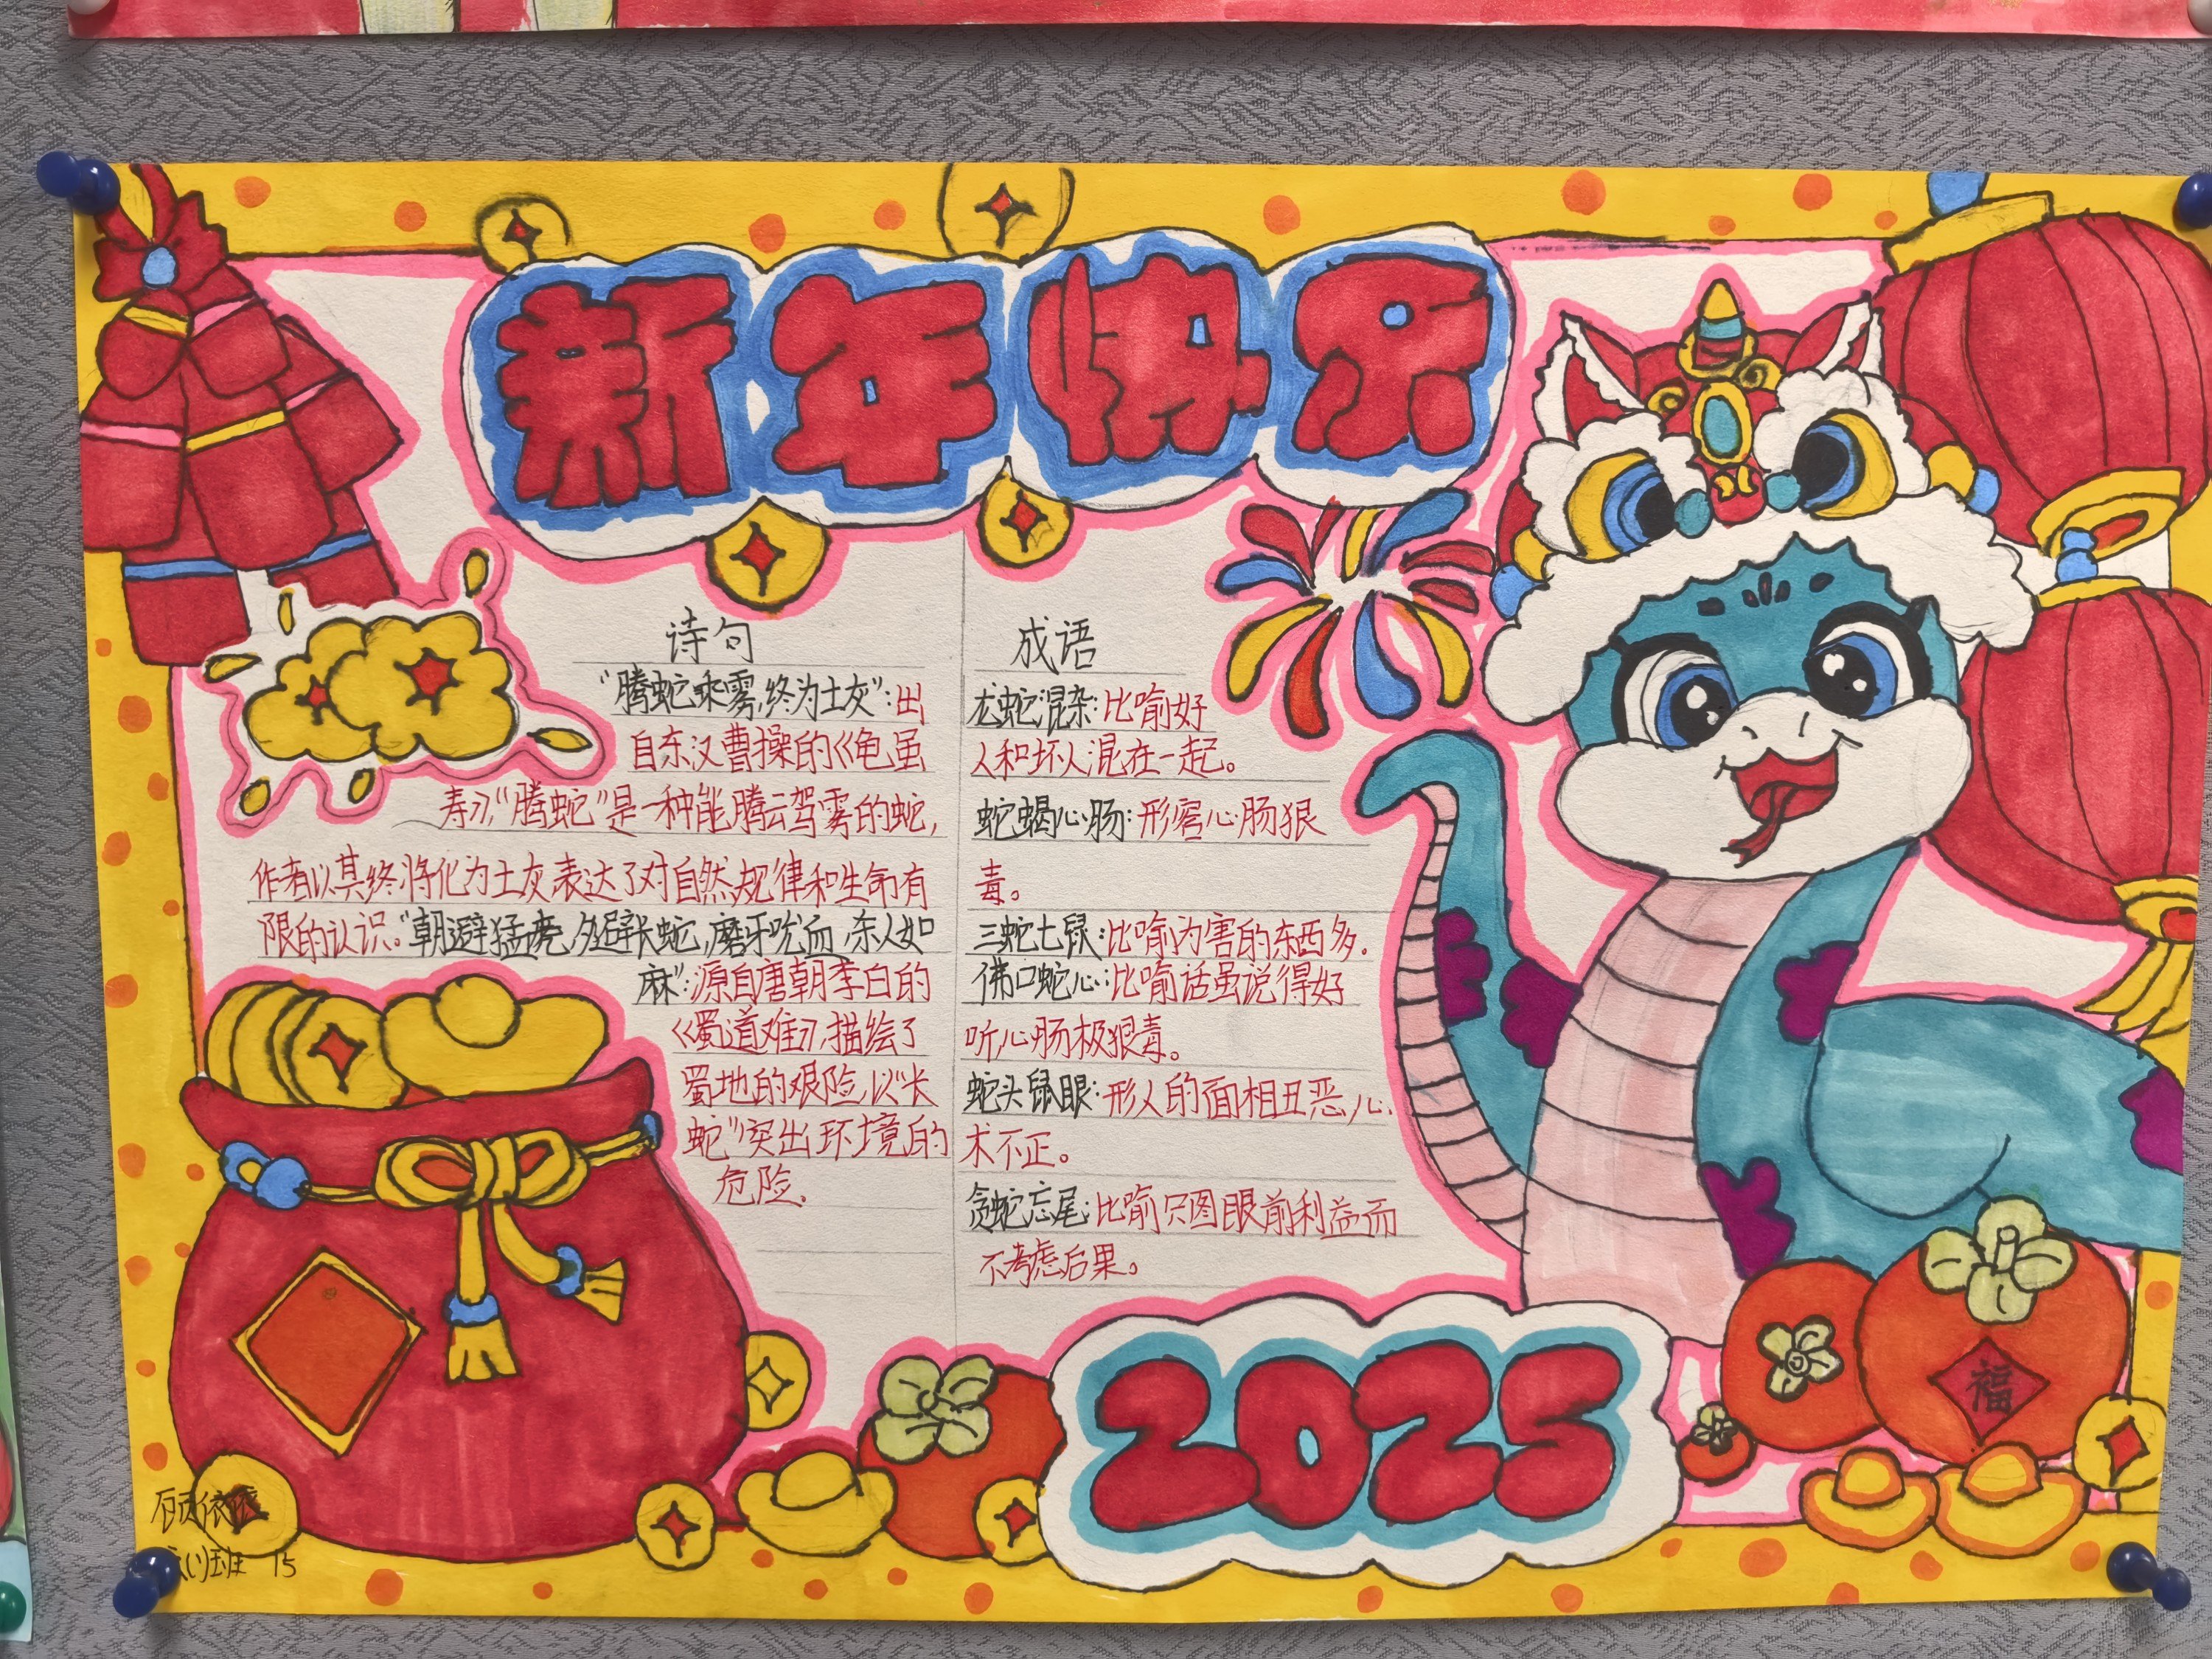 新年快乐
诗句
"腾蛇乘雾,终为土灰":出
自东汉曹操的《龟虽
寿》,"腾蛇"是一种能腾云驾雾的蛇,
作者以其终将化为土灰表达了对自然规律和生命有
限的认识。"朝避猛虎,夕避长蛇,磨牙吮血,杀人如
麻":源自唐朝李白的
《蜀道难》,描绘了
蜀地的艰险,以"长
蛇"突出环境的
危险.
成语
龙蛇混杂:比喻好
人和坏人混在一起。
蛇蝎心肠:形容心肠狠
毒。
三蛇七鼠:比喻为害的东西多.
佛口蛇心:比喻话虽说得好
听心肠极狠毒。
蛇头鼠眼:形人的面相丑恶,心
术不正。
贪蛇忘尾:比喻只图眼前利益而
不考虑后果。
2025
福
顾依依
班 15